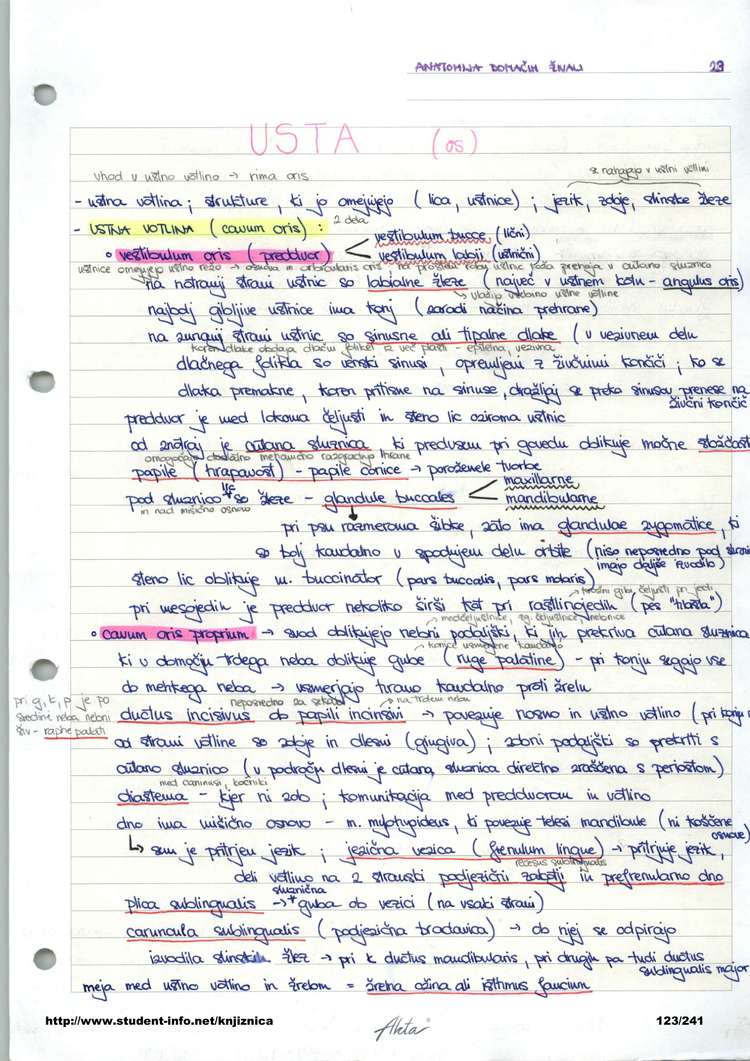 ANATOMIJA DOMAČIH ŽIVALI 23
USTA (os)
vhod v ustno votlino → rima oris
se nahajajo v ustni votlini
- ustna votlina; strukture, ki jo omejujejo (lica, ustnice); jezik, zobje, slinske žleze
- USTNA VOTLINA (cavum oris): 2 dela
• vestibulum oris (preddvor)
vestibulum bucce (lični)
vestibulum labii (ustnični)
ustnice omejujejo ustno režo → osnova m. orbicularis oris; na prostem robu ustnic koža prehaja v cutano sluznico
na notranji strani ustnic so labialne žleze (največ v ustnem kotu - angulus oris)
vlažijo ustne votline
najbolj gibljive ustnice ima konj (zaradi načina prehrane)
na zunanji strani ustnic so sinusne ali tipalne dlake (v vezivnem delu
koren dlake obdaja dlačni folikel iz več plasti - epitelna, vezivna
dlačnega folikla so venski sinusi, opremljeni z živčnimi končiči; ko se
dlaka premakne, koren pritisne na sinuse, dražljaj se preko sinusov prenese na
živčni končič
preddvor je med lokoma čeljusti in steno lic oziroma ustnic
od znotraj je cutana sluznica ki predvsem pri govedu oblikuje močne stožčaste
omogočajo dodatno mehanično razgradnjo hrane
papile (hrapavost) - papile conice → poroženele tvorbe
pod sluznico lic so žleze - glandule buccales
maxillarne
mandibularne
in nad mišično osnovo
pri psu razmeroma šibke, zato ima glandulae zygomatice, ki
so bolj kaudalno v spodnjem delu orbite (niso neposredno pod
imajo daljše izvodilo)
steno lic oblikuje m. buccinator (pars buccalis, pars molaris)
gibi čeljusti pri jedi
pri mesojedih je preddvor nekoliko širši kot pri rastlinojedih (pes "hlasta")
medčeljustnice, zg. čeljustnice, nebnice
• cavum oris proprium → svod oblikujejo nebni podaljški, ki jih prekriva cutana sluznica
konice usmerjene kaudalno
ki v območju trdega neba oblikuje gube (ruge palatine) - pri konju segajo vse
do mehkega neba → usmerjajo hrano kaudalno proti žrelu
pri g, k, p je po
sredine neba nebni
šiv - raphe palati
neposredno za sekalci
na trdem nebu
ductus incisivus ob papili incisivi → povezuje nosno in ustno votlino (pri konju ni
od strani votline so zobje in dlesni (gingiva); zobni podaljški so prekriti s
cutano sluznico (v področju dlesni je cutana sluznica direktno zraščena s periostom)
med caninusi, kočniki
diastema - kjer ni zob; komunikacija med preddvorom in votlino
dno ima mišično osnovo - m. mylohyoideus, ki povezuje telesi mandibule (ni koščene
osnove)
↳ sem je pritrjen jezik; jezična vezica (frenulum lingue) → pritrjuje jezik,
recesus sublingualis
deli votlino na 2 stranski podjezični zatočji in prefrenularno dno
plica sublingualis → sluznična guba ob vezici (na vsaki strani)
caruncula sublingualis (podjezična bradavica) → ob njej se odpirajo
izvodila slinskih žlez → pri k ductus mandibularis, pri drugih pa tudi ductus
sublingualis major
meja med ustno votlino in žrelom = žrelna ožina ali isthmus faucium
http://www.student-info.net/knjiznica
Aleta
123/241